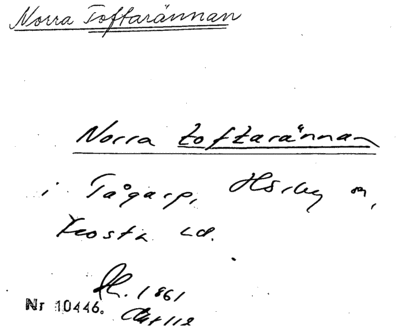 Norra Toftarännan
Norra toftarännan
i Tågarp, Hörby sn,
Frosta hd.
1861
Nr 10446.
Akt 112